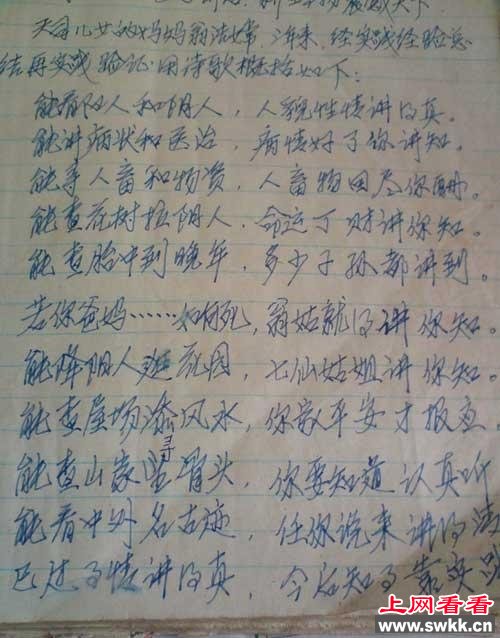 天目儿女的妈妈翁浩嫦，许来，经实践经验总
结再实践验证。用诗歌概括如下：
能看阳人和阴人，人貌性情讲得真。
能讲病状和医治，病情好了你讲知。
能寻人畜和物资，人畜物回尽你酬。
能查花树招阴人，命运丁财讲你知。
能查胎中到晚年，多少子孙都讲到。
若你爸妈……如何死，翁姑就得讲你知。
能降阴人死因，七仙姑姐讲你知。
能查屋场添风水，你家平安才报应。
能查山家坐寻骨头，你要知道认真听
能看中外名古迹，任你说来讲得清
已过了情讲得真，今后知了靠实
上网看看
www.swkk.cn